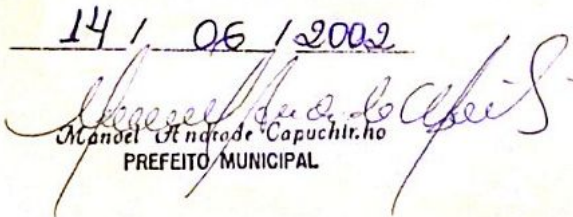 14 / 06 / 2002
Manoel Andrade Capuchinho
PREFEITO MUNICIPAL